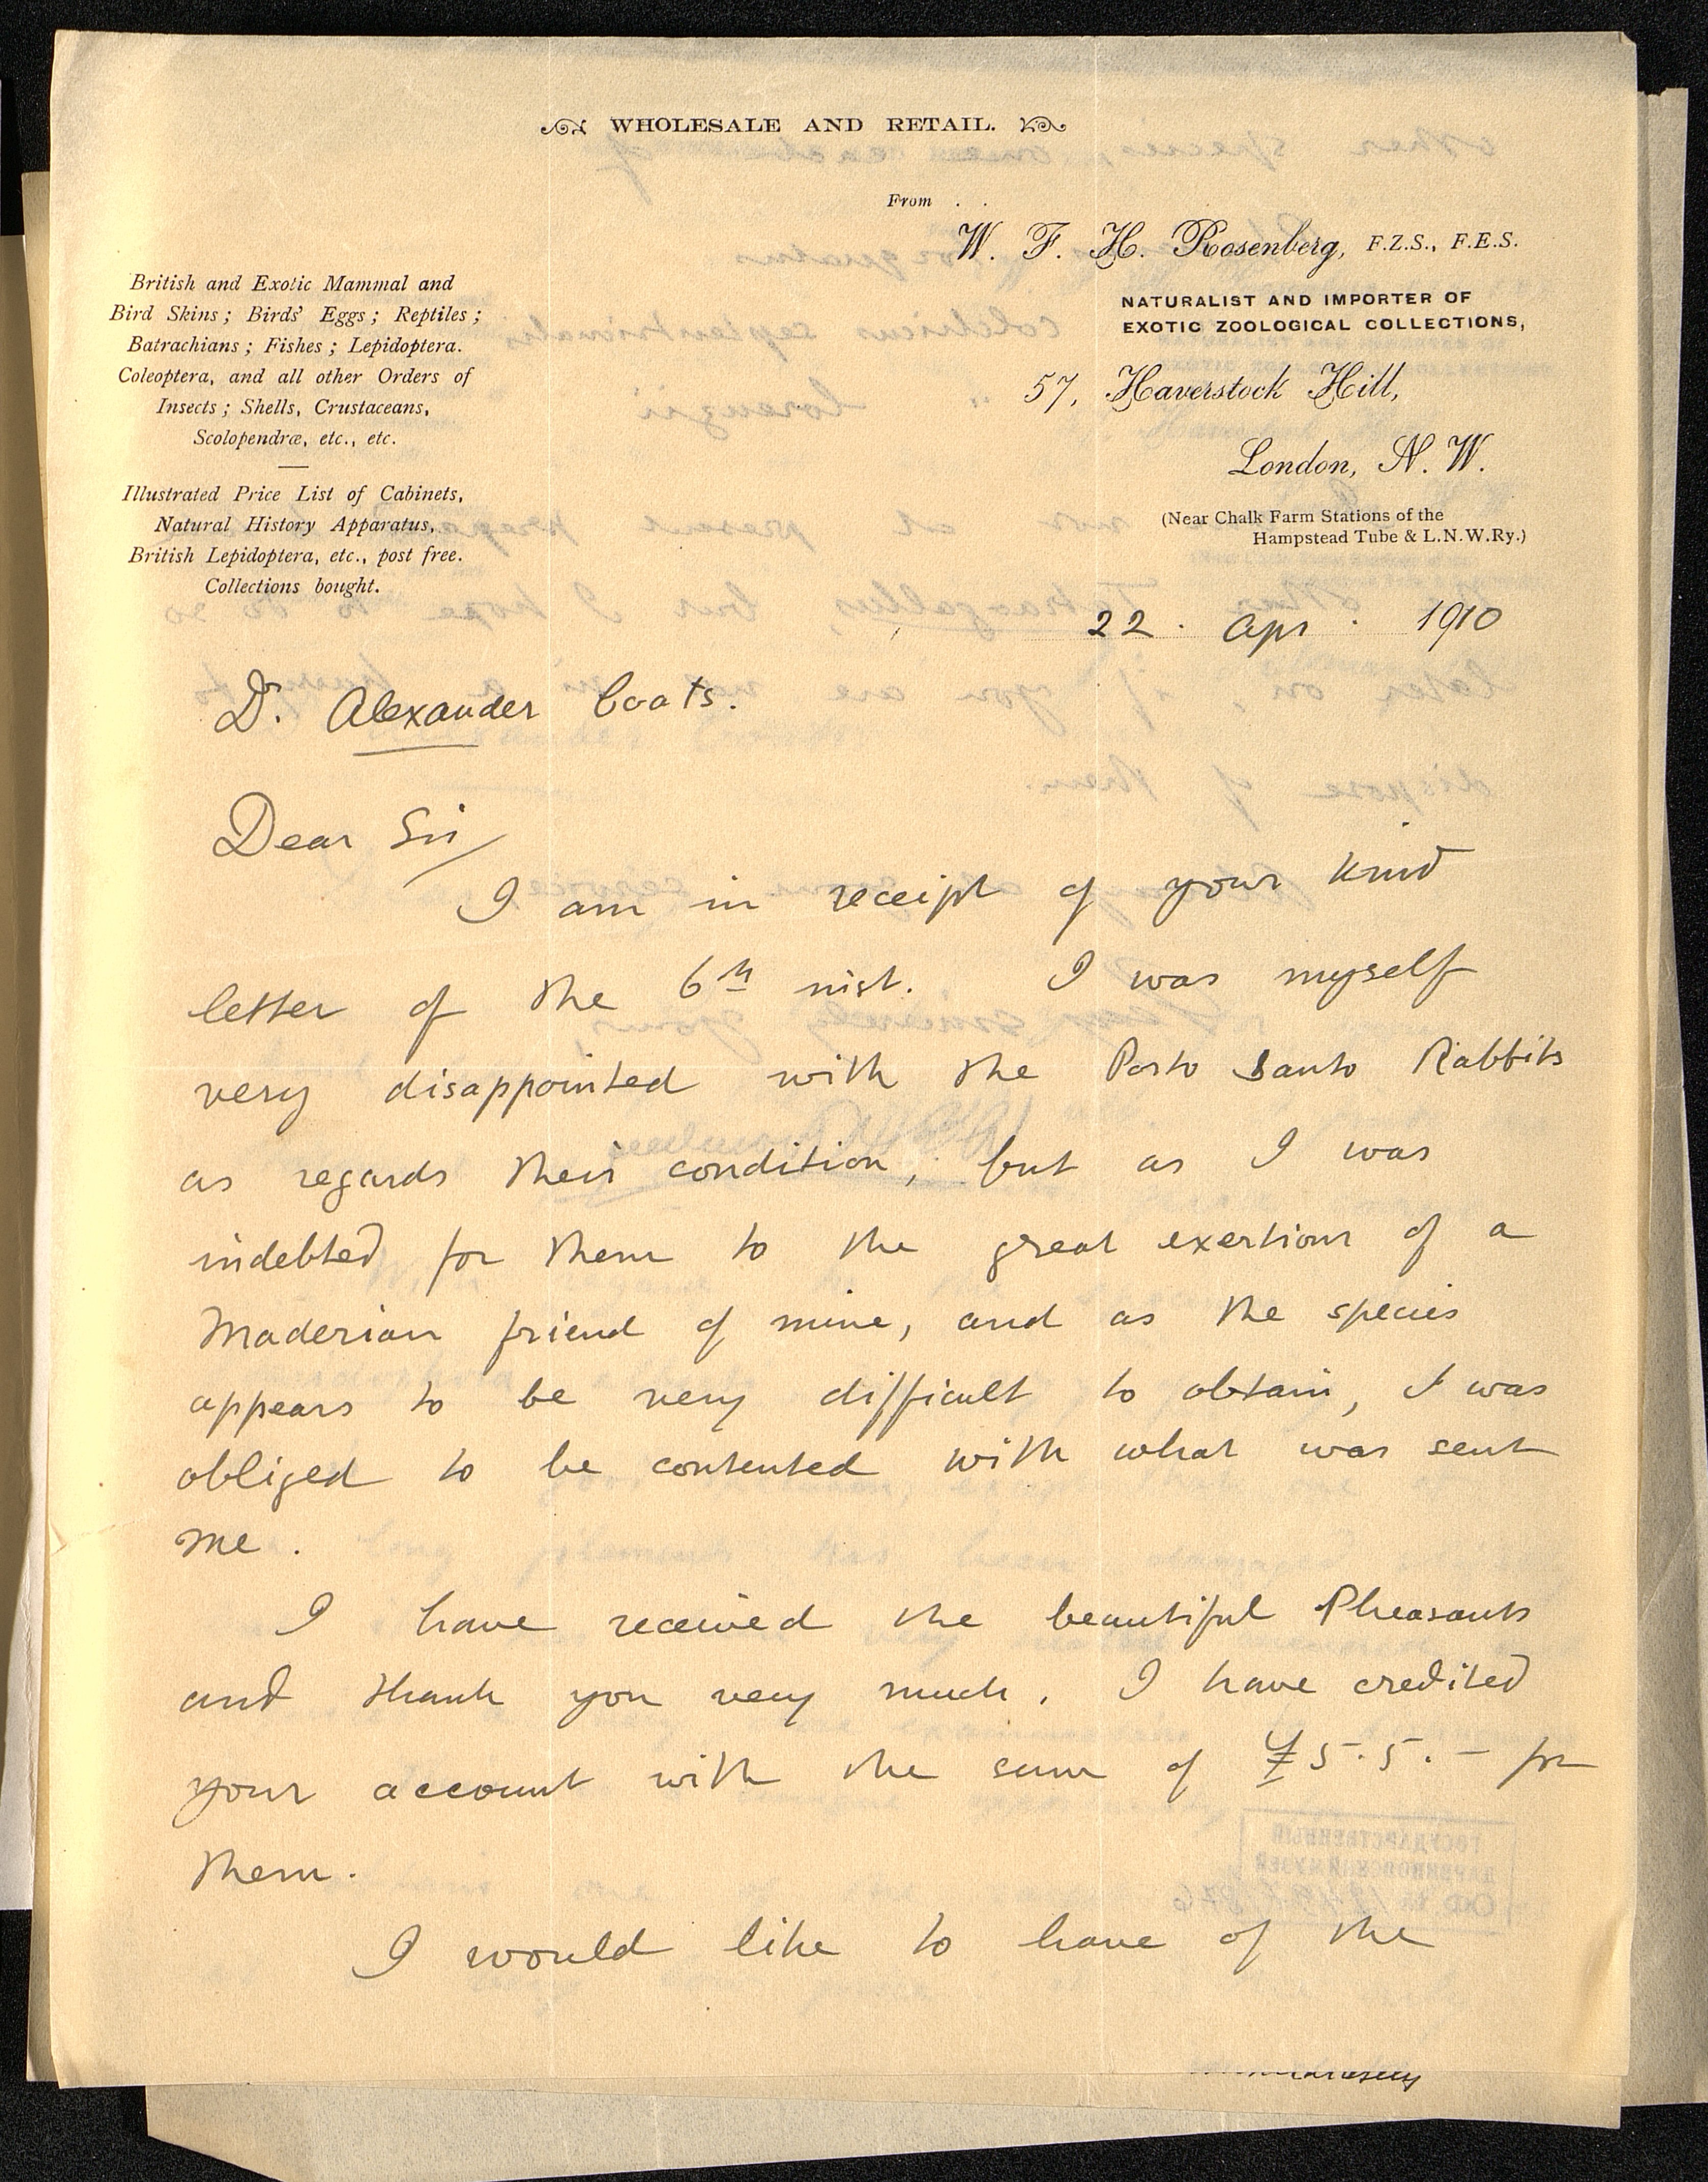 WHOLESALE AND RETAIL.
From . .
W. F. H. Rosenberg, F.Z.S., F.E.S.
NATURALIST AND IMPORTER OF
EXOTIC ZOOLOGICAL COLLECTIONS,
57, Haverstock Hill,
London, N. W.
(Near Chalk Farm Stations of the
Hampstead Tube & L.N.W.Ry.)
British and Exotic Mammal and
Bird Skins; Birds' Eggs; Reptiles;
Batrachians; Fishes; Lepidoptera.
Coleoptera, and all other Orders of
Insects; Shells, Crustaceans,
Scolopendræ, etc., etc.
Illustrated Price List of Cabinets,
Natural History Apparatus,
British Lepidoptera, etc., post free.
Collections bought.
22. Apr. 1910
Dr. Alexander Coats.
Dear Sir/
I am in receipt of your kind
letter of the 6th inst. I was myself
very disappointed with the Porto Santo Rabbits
as regards their condition, but as I was
indebted for them to the great exertions of a
Maderian friend of mine, and as the species
appears to be very difficult to obtain, I was
obliged to be contented with what was sent
me.
I have received the beautiful Pheasants
and thank you very much. I have credited
your account with the sum of £5.5.- for
them.
I would like to have of the